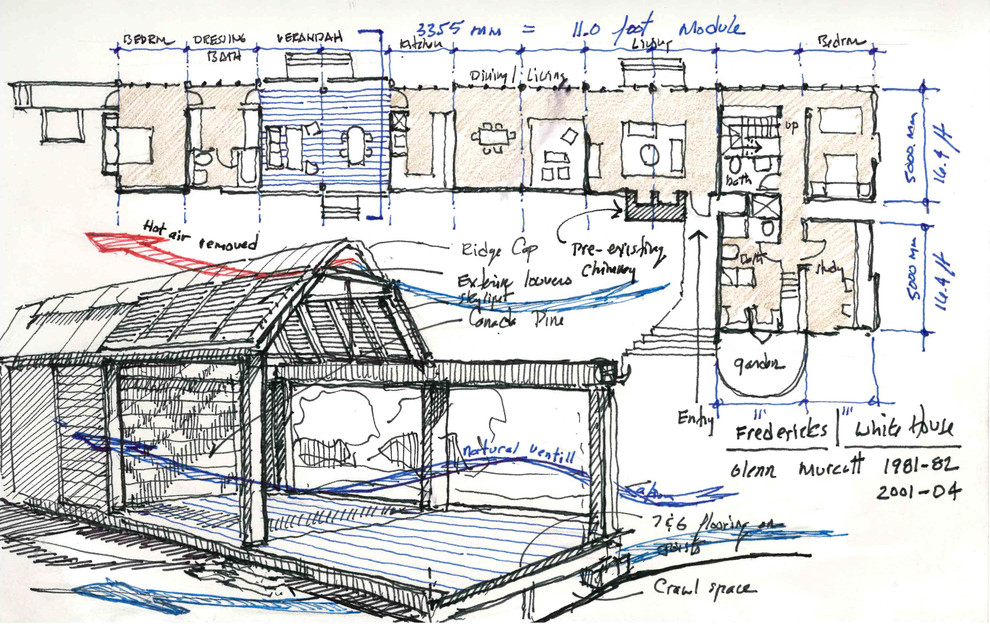 3355 mm = 11.0 foot Module
BEDRM
DRESSING
BATH
VERANDAH
Kitchen
Dining / Living
Living
Bedrm
up
bath
5000 mm
16.4 ft
5000 mm
16.4 ft
Bath
study
garden
11'
11'
Entry
Pre-existing
Chimney
Hot air removed
Ridge Cap
Exterior louvers
skylight
Canada Pine
natural ventill
T&G flooring on
joists
Crawl space
Fredericks / White House
Glenn Murcutt 1981-82
2001-04